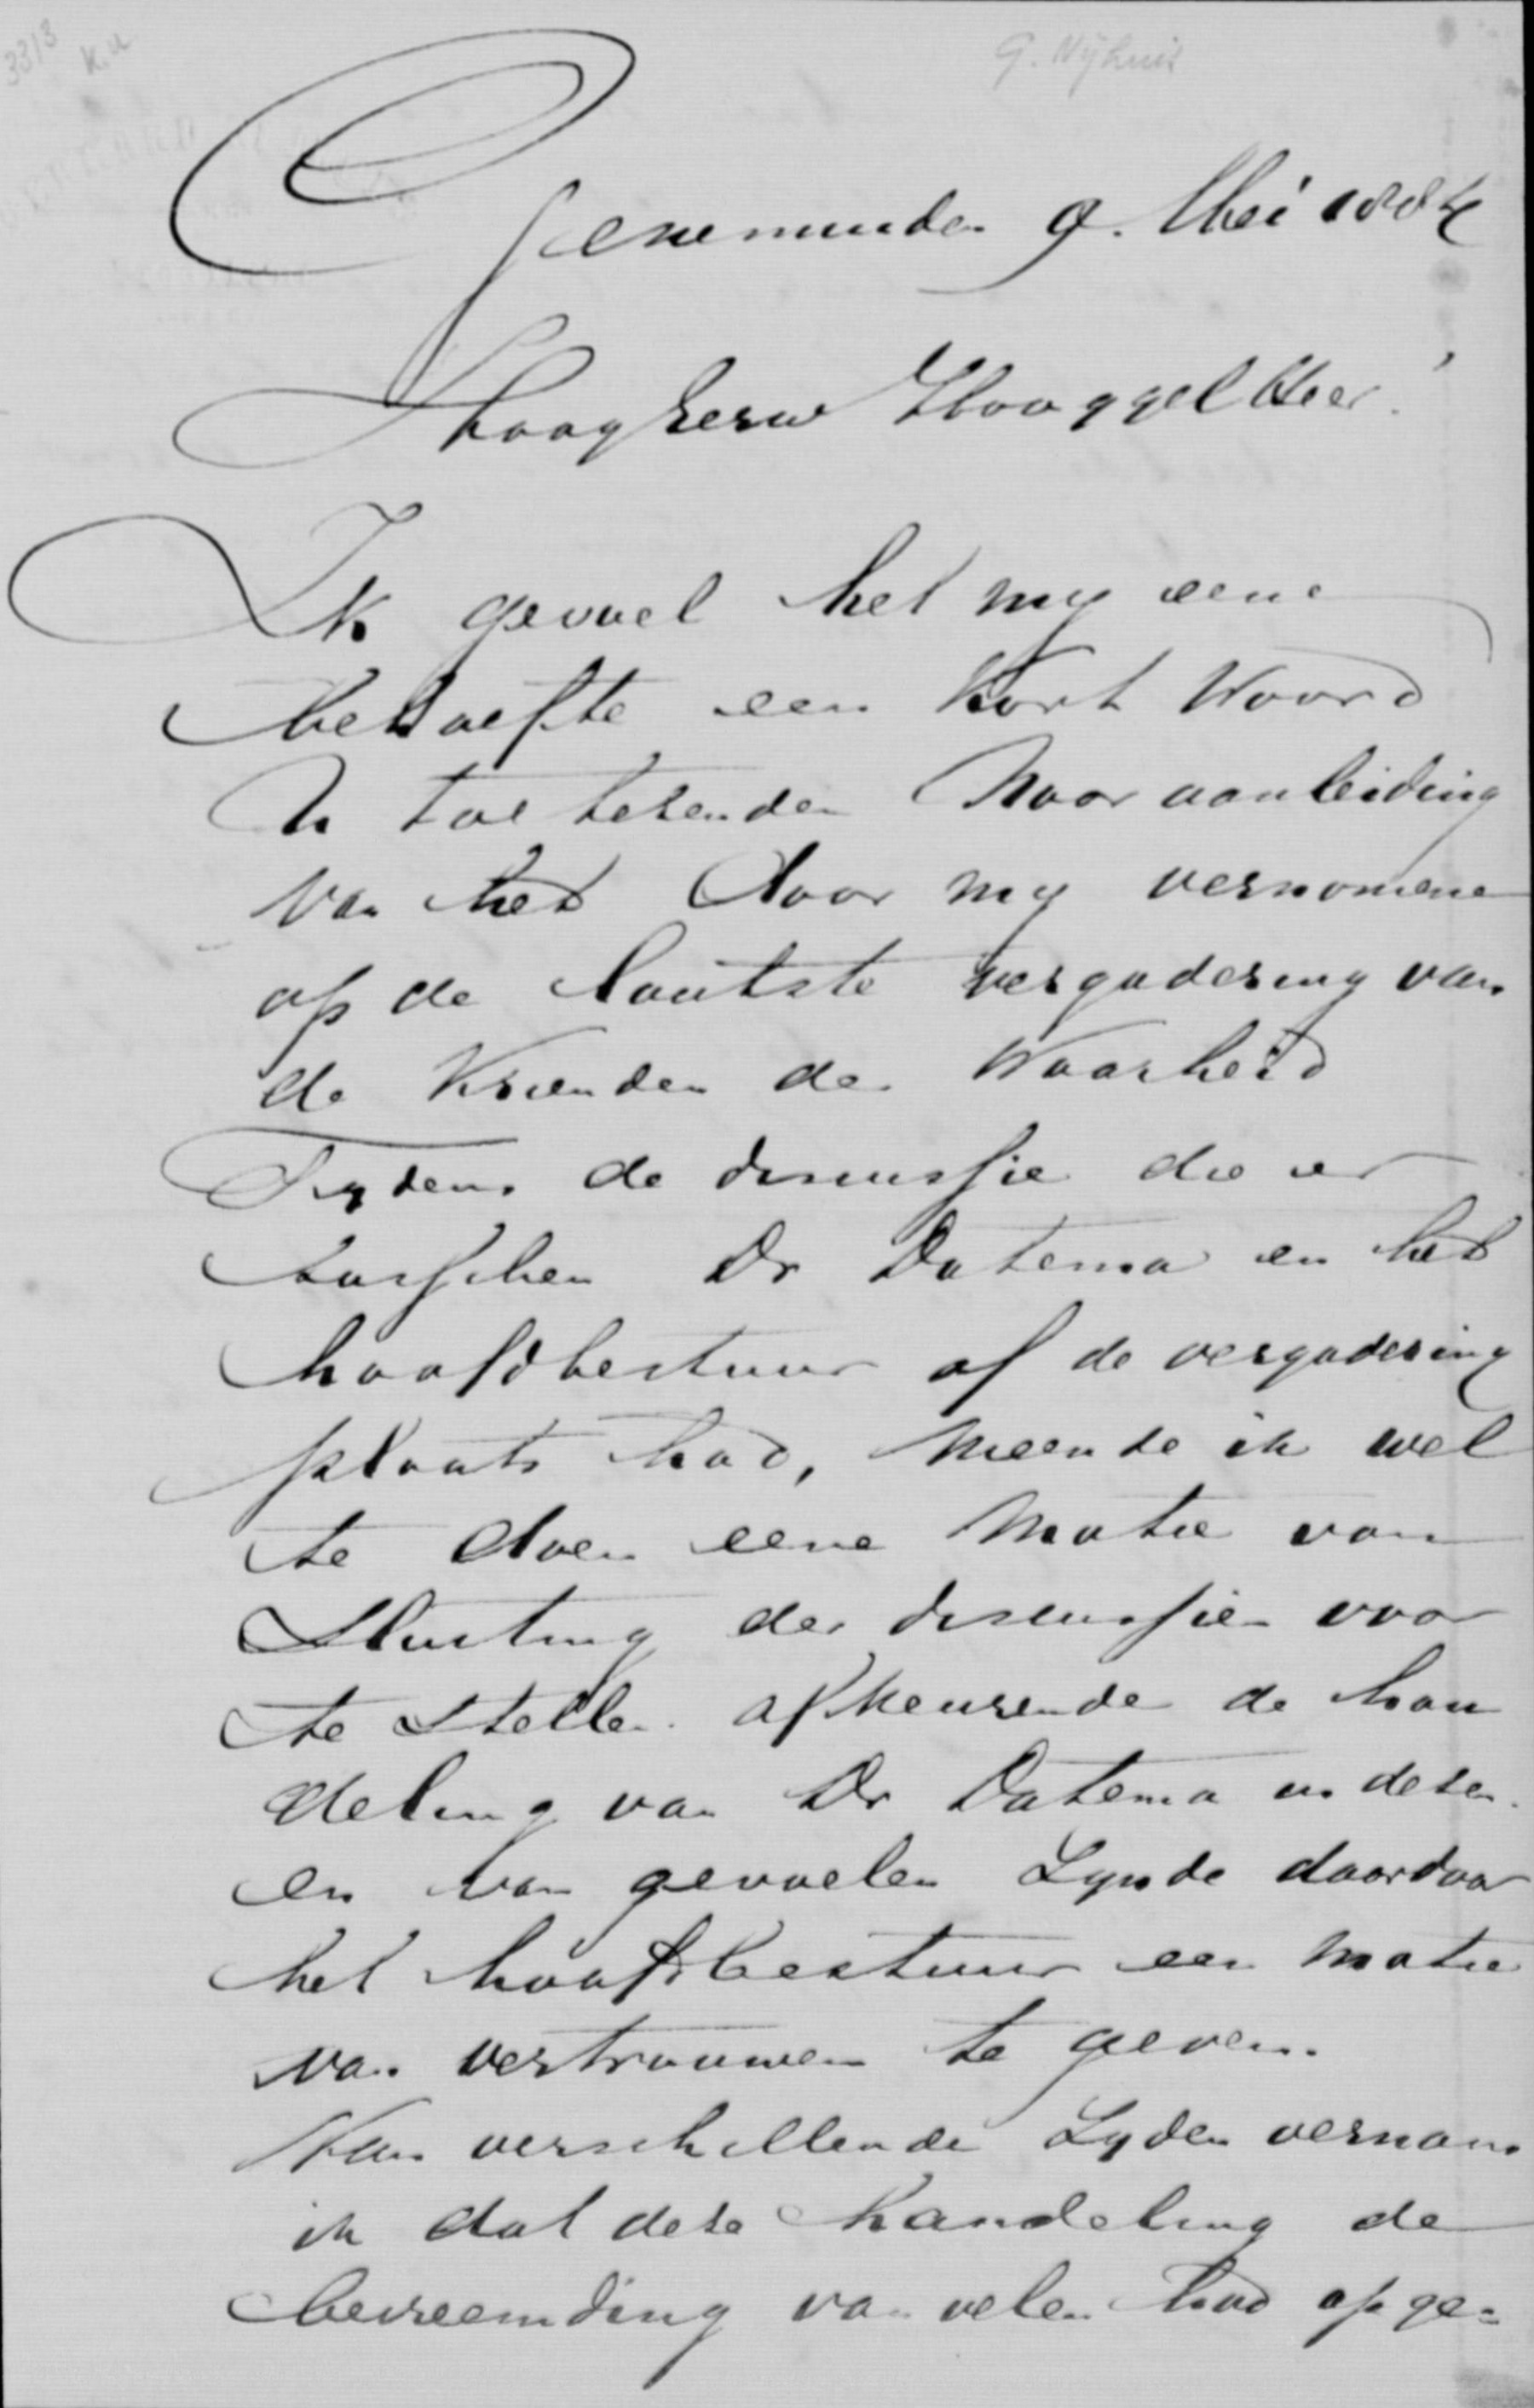 3313
K.u
G. Nÿhuis
Genemuiden 9. Mei 1884
HoogEerw HooggelHeer!
Ik gevoel het my eene
behoefte een kort Woord
U toe tezenden Naar aanleiding
van het door my vernomene
op de laatste vergadering van
de Vrienden der Waarheid
Tydens de discussie die er
tusschen Dr Datema en het
hoofdbestuur of de vergadering
plaats had, meende ik wel
te doen eene Motie van
Sluiting der discussien voor
te stellen. afkeurende de han
deling van Dr Datema in dezen.
en van gevoelen Zynde daardoor
het hoofdbestuur een motie
van vertrouwen te geven.
Van verschillende Zyden vernam
ik dat deze handeling de
bevreemding van velen had opge=